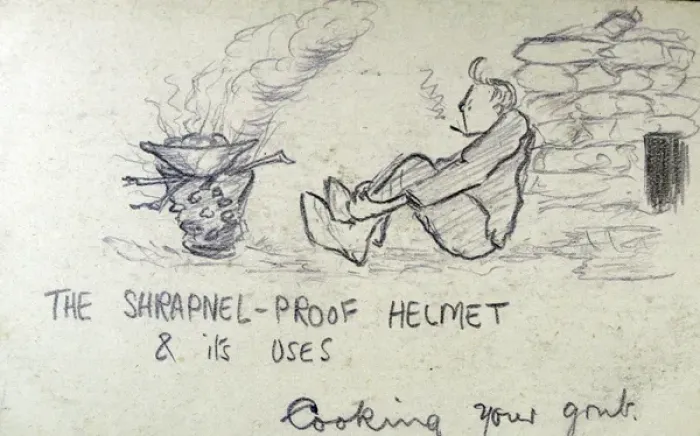 THE SHRAPNEL-PROOF HELMET
& it's USES
Cooking your grub.